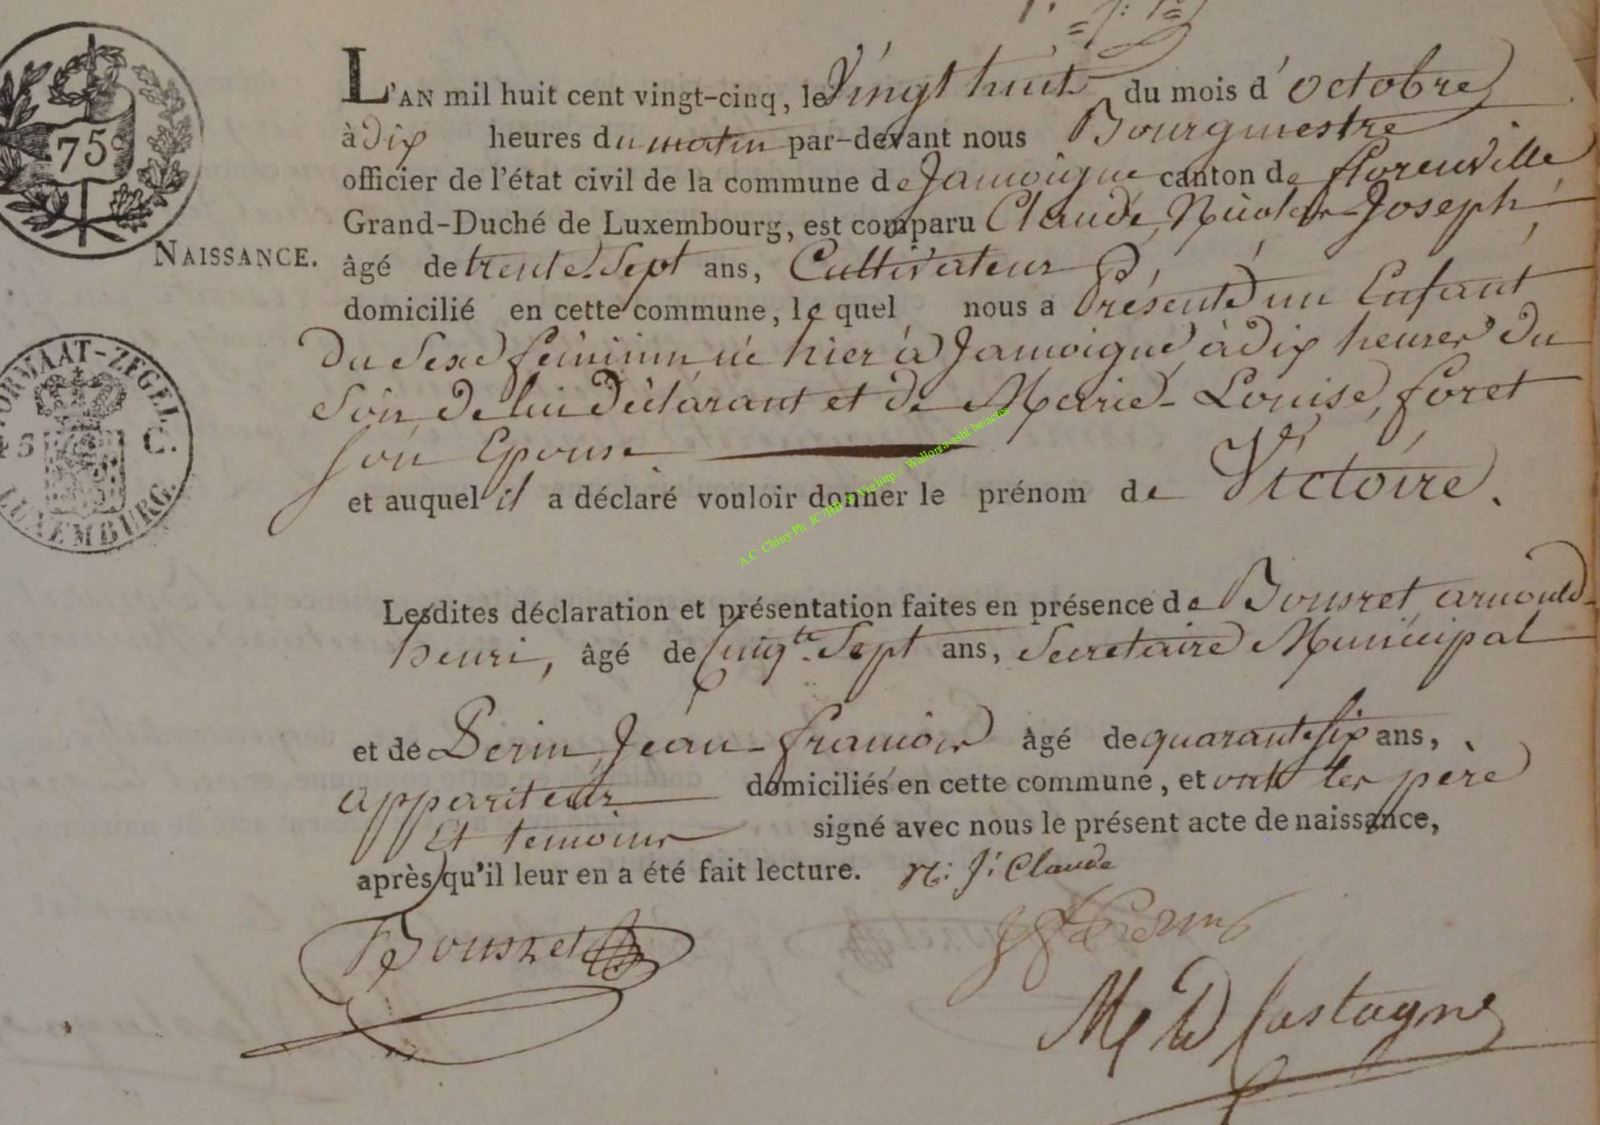 75
L'AN mil huit cent vingt-cinq, le Vingt huit du mois d'octobre
à dix heures du matin par-devant nous Bourgmestre
officier de l'état civil de la commune de Jamoigne canton de florenville
Grand-Duché de Luxembourg, est comparu Claude, Nicolas-Joseph,
NAISSANCE.
âgé de trente-Sept ans, Cultivateur
domicilié en cette commune, le quel nous a Présenté un Enfant
du Sexe feminin né hier à Jamoigne à dix heures du
Soir de lui déclarant et de Marie-Louise foret
Son Epouse
et auquel il a déclaré vouloir donner le prénom de Victoire.
FORMAAT-ZEGEL
45 C.
LUXEMBURG.
A.C. Chiny Ph JC
Lesdites déclaration et présentation faites en présence de Bousret arnould-
henri, âgé de Cinqte Sept ans, Secretaire Municipal
et de Perin Jean-françois âgé de quarante six ans,
appariteur domiciliés en cette commune, et ont les père
Et temoins signé avec nous le présent acte de naissance,
après qu'il leur en a été fait lecture. N: J: Claude
Bousret
Perin